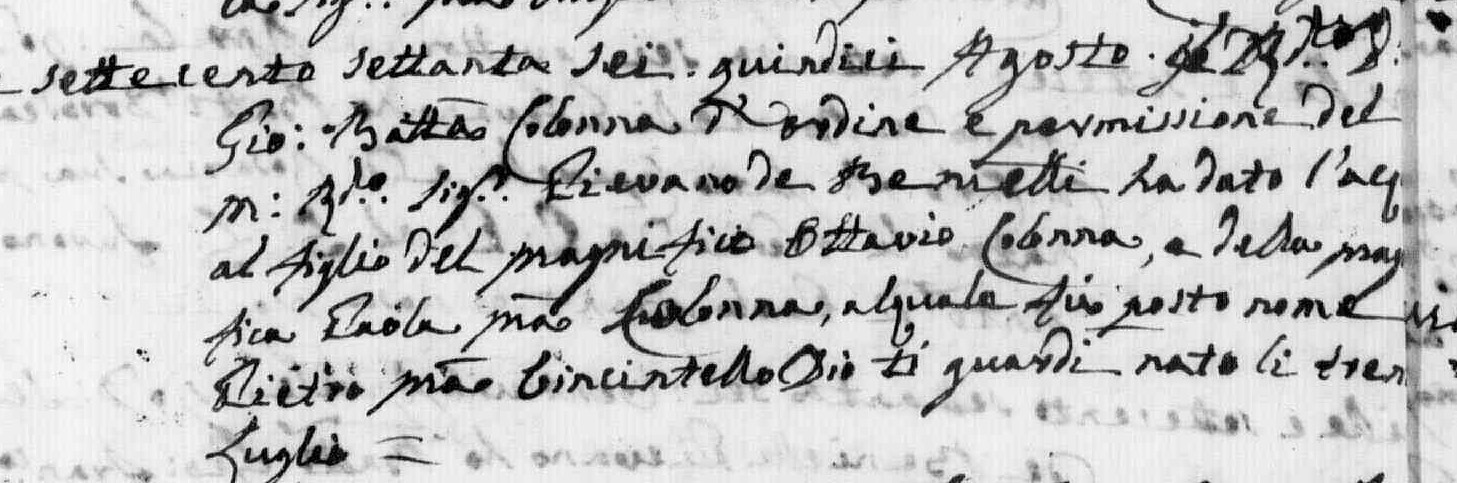 settecento settanta sei. quindici Agosto. il R.do S.
Gio: Batta Colonna d'ordine e permissione del
m: R.do Sig.r Pievano de Benielli ha dato l'acq
al figlio del magnifico Ottavio Colonna, e della mag
fica Paola ma Colonna, al quale fù posto nome
Pietro ma Cincintello Dio ti guardi nato li tren
Luglio =